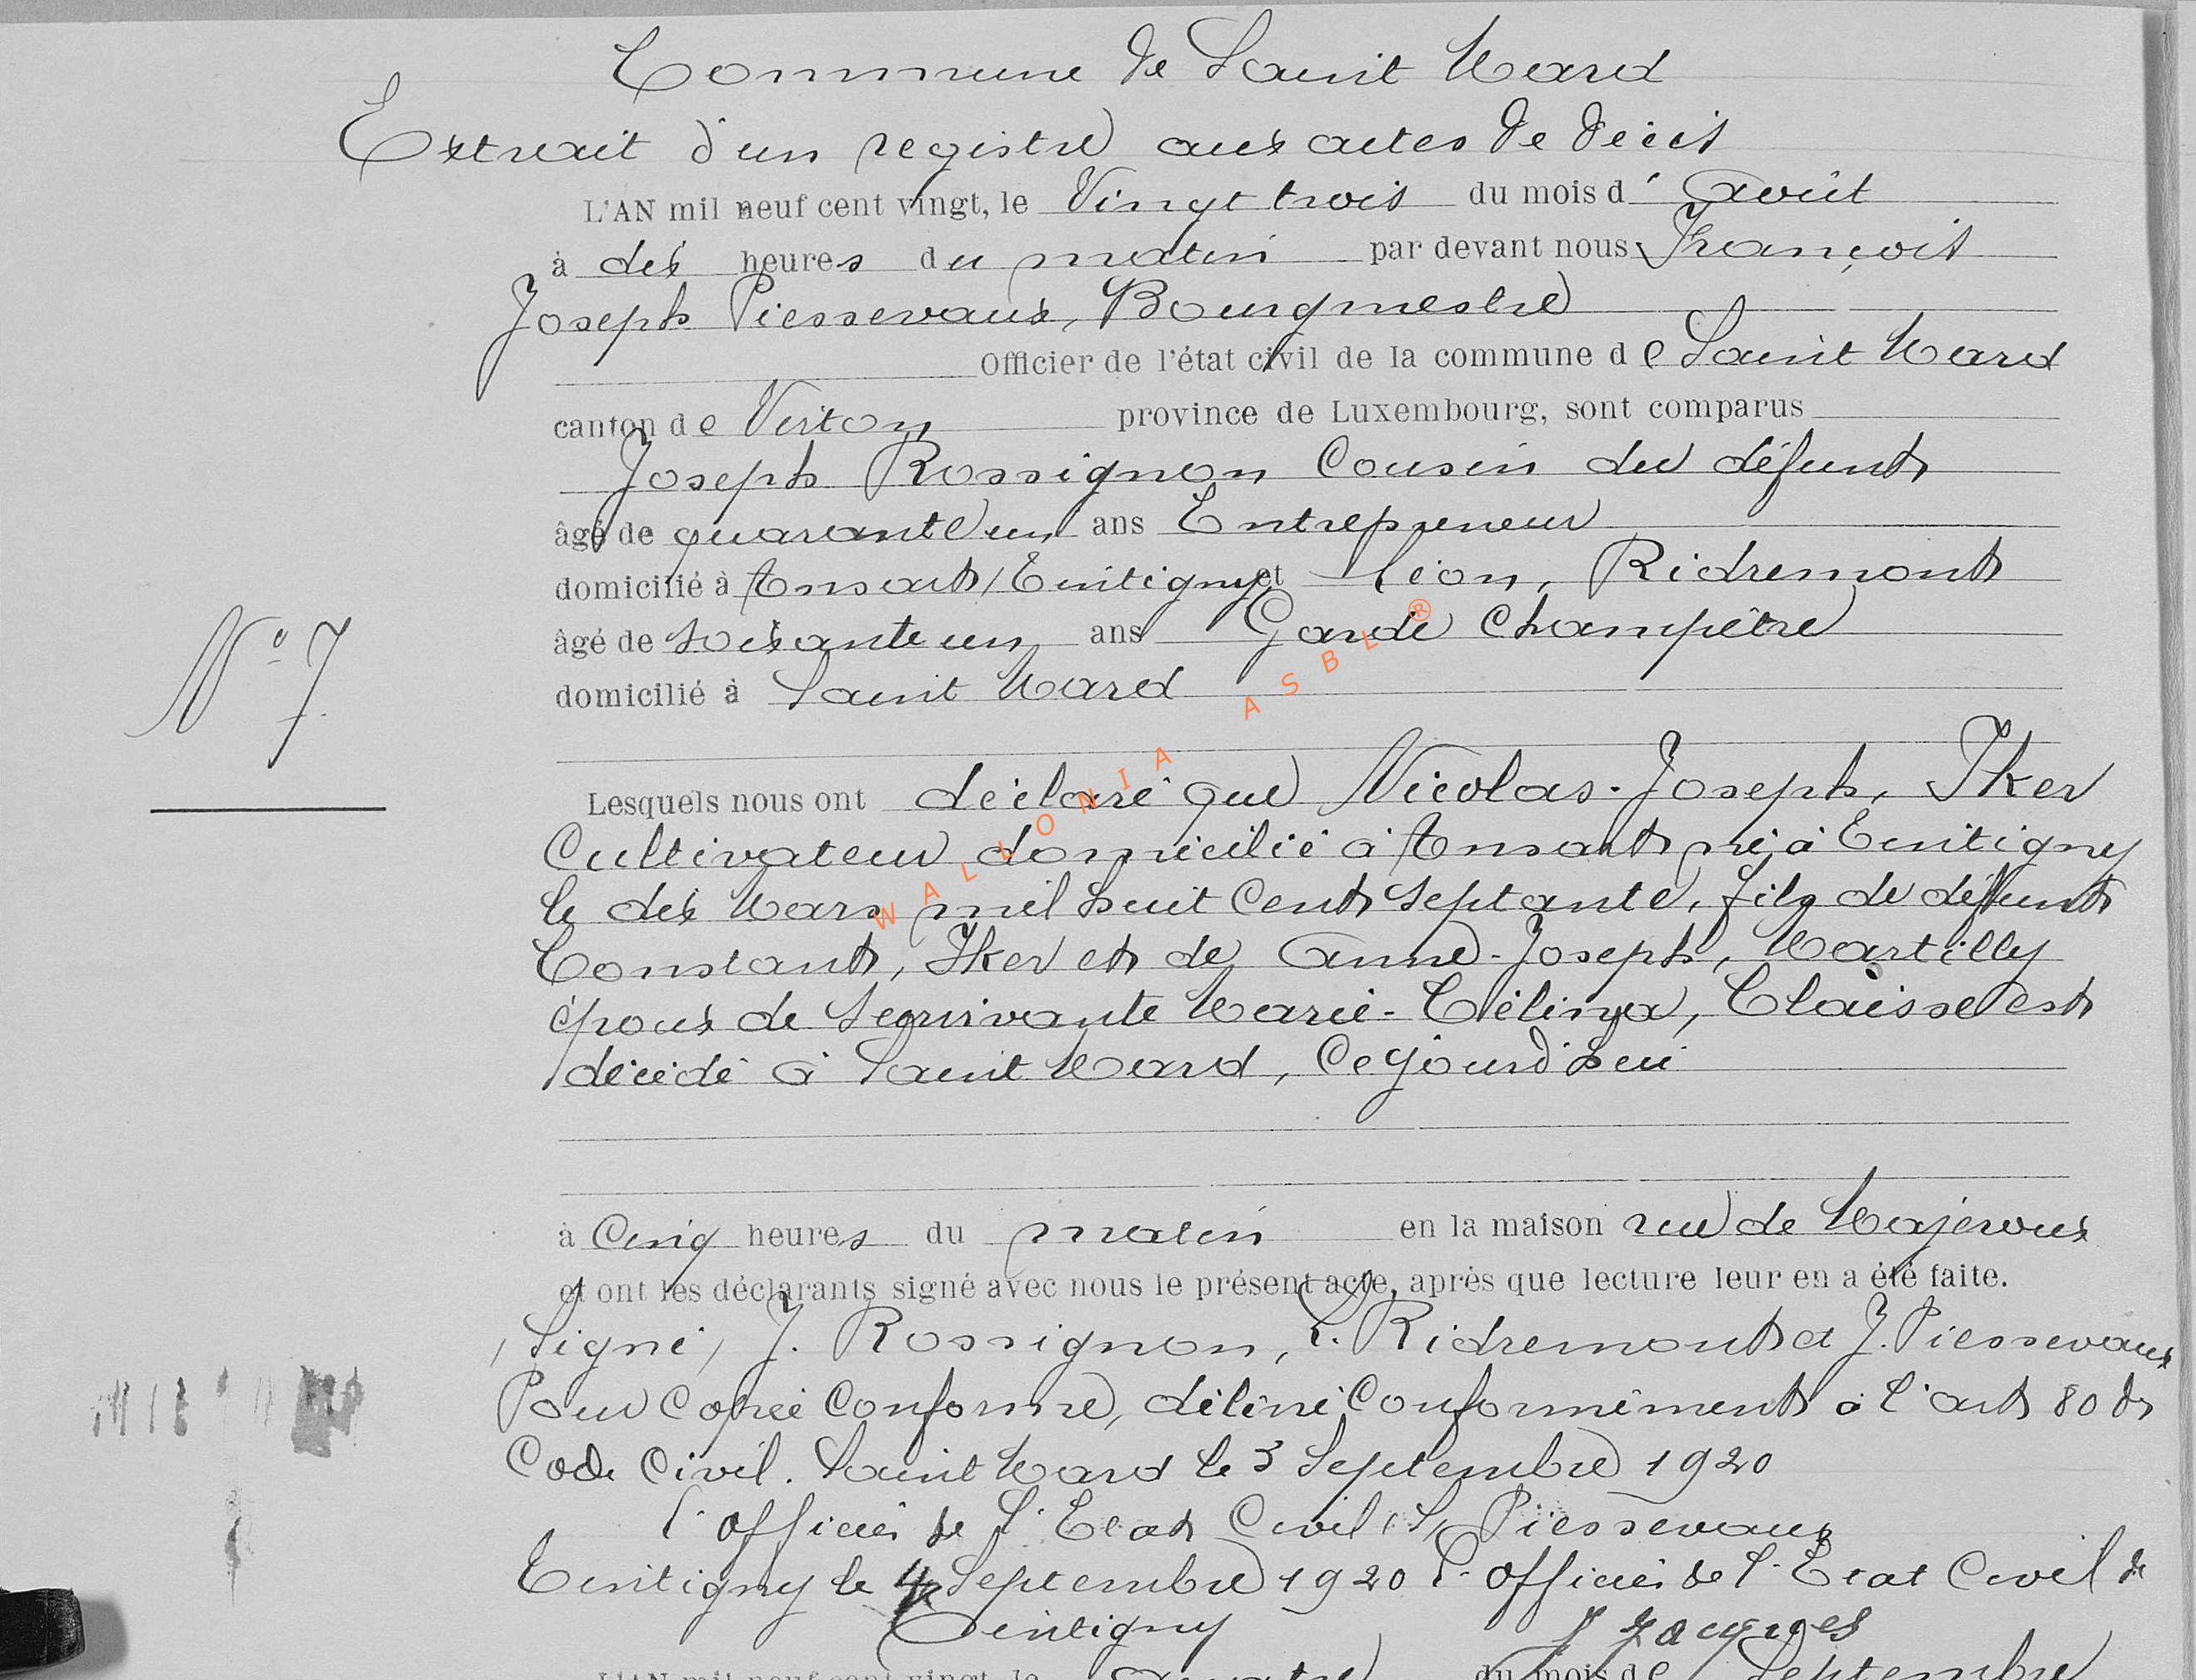 Commune de Saint Mard
Extrait d'un registre aux actes de décès
L'AN mil neuf cent vingt, le Vingt trois du mois d' août
à dix heures du matin par devant nous François
Joseph Piessevaux, Bourgmestre
Officier de l'état civil de la commune de Saint Mard
canton de Virton province de Luxembourg, sont comparus
Joseph Rossignon Cousin du défunt
âgé de quarante un ans Entrepreneur
domicilié à Ansart, Tintigny et Léon, Ridremont
âgé de soixante un ans Garde Champêtre
domicilié à Saint Mard
N° 7.
Lesquels nous ont déclaré que Nicolas-Joseph, Iker
Cultivateur domicilié à Ansart né à Tintigny
le dix Mars mil huit Cent septante, fils de défunt
Constant, Iker et de Anne-Joseph, Martilly
époux de survivante Marie-Célinya, Claisse est
décédé à Saint Mard, Cejourd'hui
à Cinq heures du matin en la maison rue de Majeroux
et ont les déclarants signé avec nous le présent acte, après que lecture leur en a été faite.
(Signé) J. Rossignon, L. Ridremont et J. Piessevaux
Pour Copie Conforme, délivré Conformément à l'art 80 du
Code Civil. Saint Mard le 3 Septembre 1920
l'officier de l'Etat Civil (S) Piessevaux
Tintigny le 4 Septembre 1920 L'officier de l'Etat Civil de
Tintigny J Jacques
L'AN mil neuf cent vingt, le quatre du mois de Septembre
WALLONIA ASBL ®